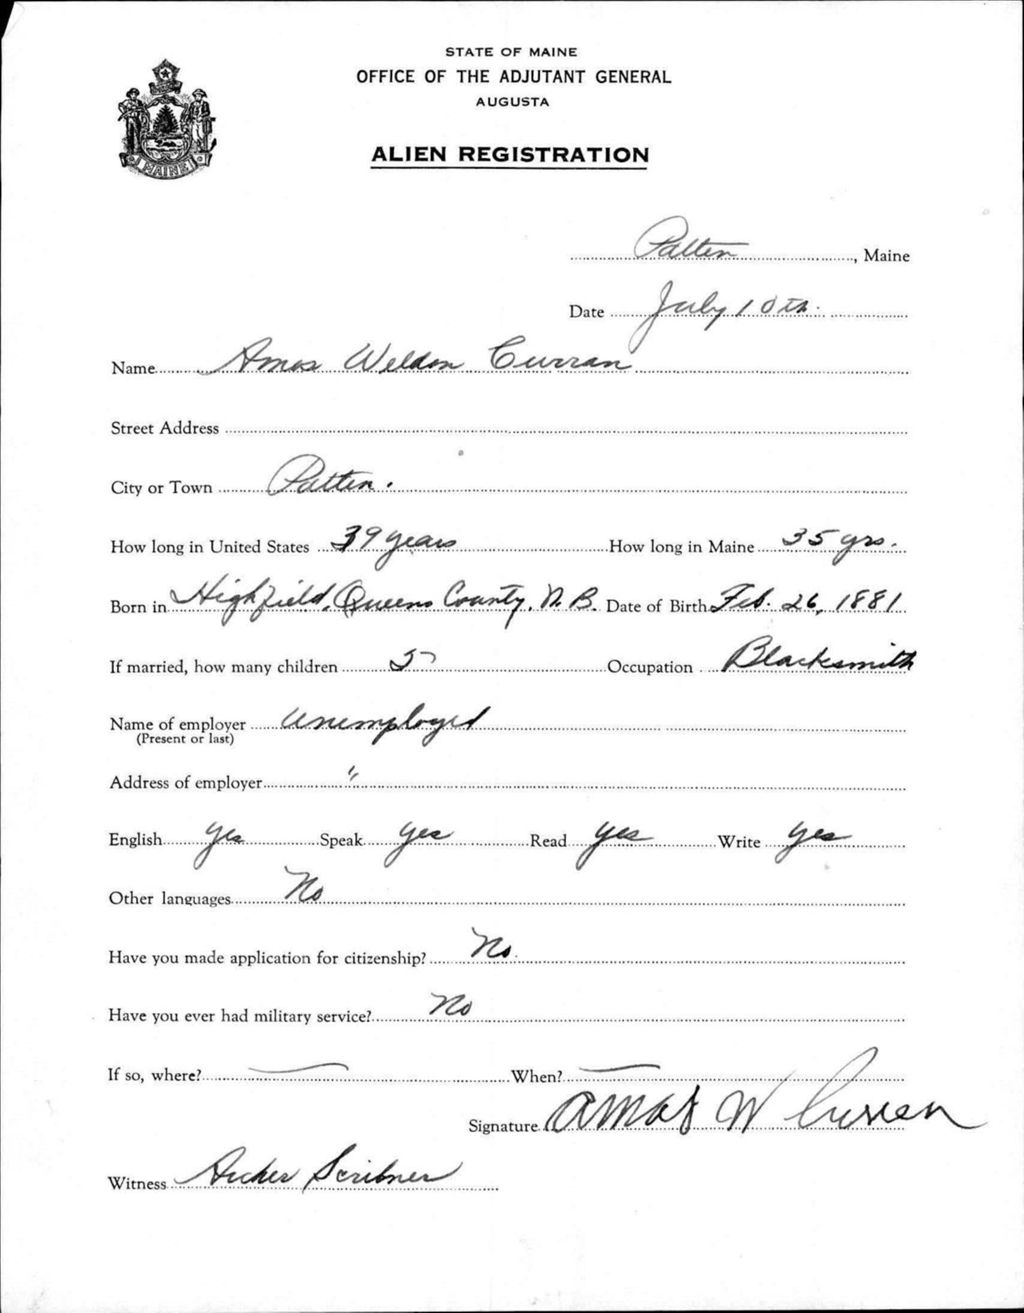 STATE OF MAINE
OFFICE OF THE ADJUTANT GENERAL
AUGUSTA
ALIEN REGISTRATION
MAINE
Patten, Maine
Date July 10th.
Name Amos Weldon Curran
Street Address
City or Town Patten.
How long in United States 39 years How long in Maine 35 yrs.
Born in Highfield, Queens County, N.B. Date of Birth Feb. 26, 1881
If married, how many children 5 Occupation Blacksmith
Name of employer Unemployed
(Present or last)
Address of employer "
English Yes Speak Yes Read Yes Write Yes
Other languages No
Have you made application for citizenship? No.
Have you ever had military service? No
If so, where? — When? —
Signature Amos W Curren
Witness Archer Scribner